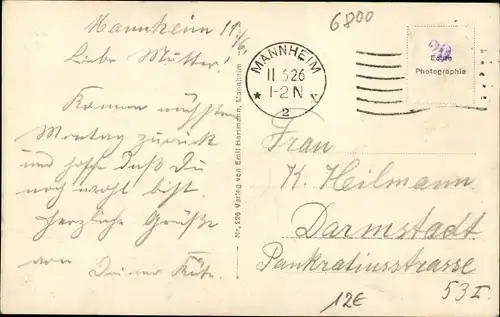 Mannheim 11/6.
Liebe Mutter!
Komme nächsten
Montag zurück
und hoffe daß Du
noch wohl bist.
Herzliche Grüße
von Deiner Käte.
Nr. 226 Verlag von Emil Hartmann, Mannheim
6800
MANNHEIM
11 6.26
1-2 N
* 2 x
Echte
Photographie
Frau
K. Heilmann
Darmstadt
Pankratiusstrasse
53 I.
12€